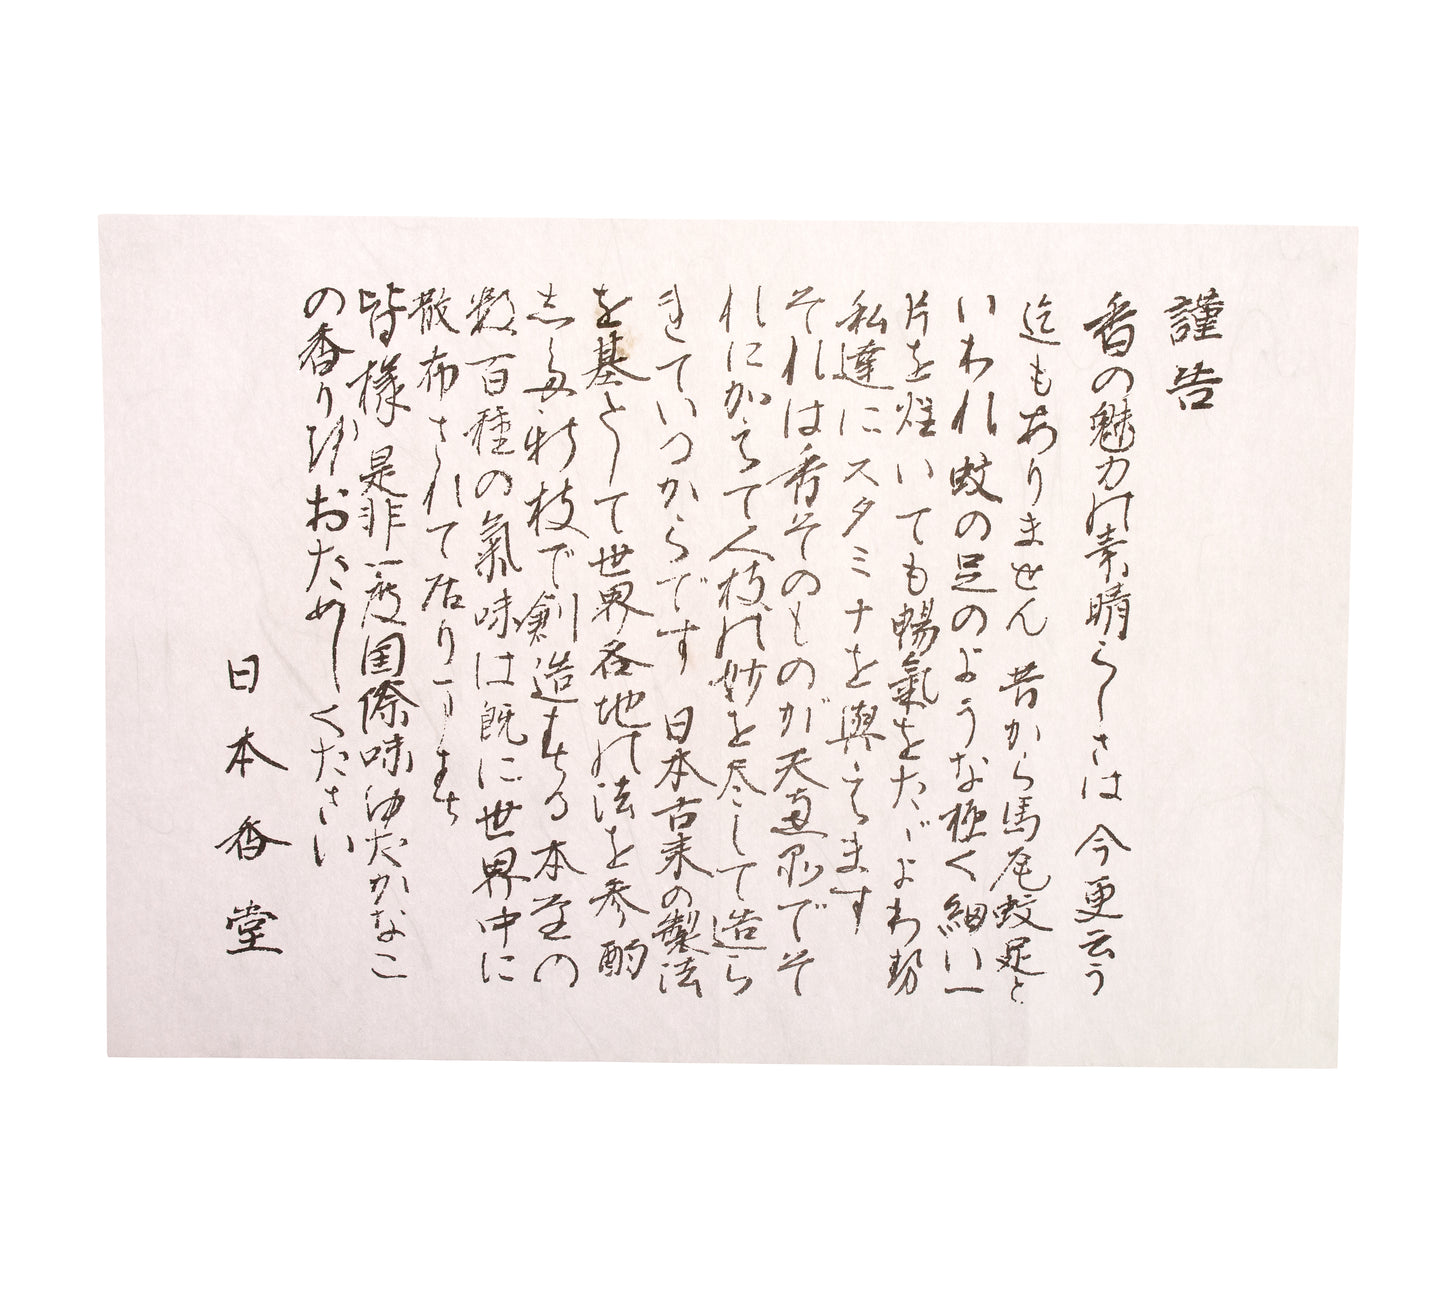 謹告
香の魅力の素晴らしさは 今更云う
迄もありません 昔から馬尾蚊足と
いわれ 蚊の足のような極く細い一
片を炷いても暢氣をたゞよわ勢
私達にスタミナを與えます
それは香そのものが天
れにかえて人技の妙を尽して造ら
れていつからです 日本古来の製法
を基として世界各地の法を参酌
した新技で創造する本堂の
数百種の氣味は既に世界中に
散布されて居ります
皆様 是非一度国際味ゆたかなこ
の香りがおためしください
日本香堂